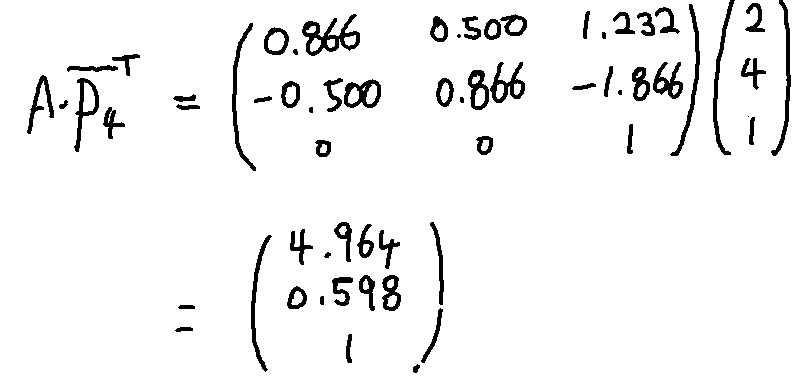 A·p̅₄ᵀ = (0.866 0.500 1.232; -0.500 0.866 -1.866; 0 0 1)(2; 4; 1)
= (4.964; 0.598; 1)